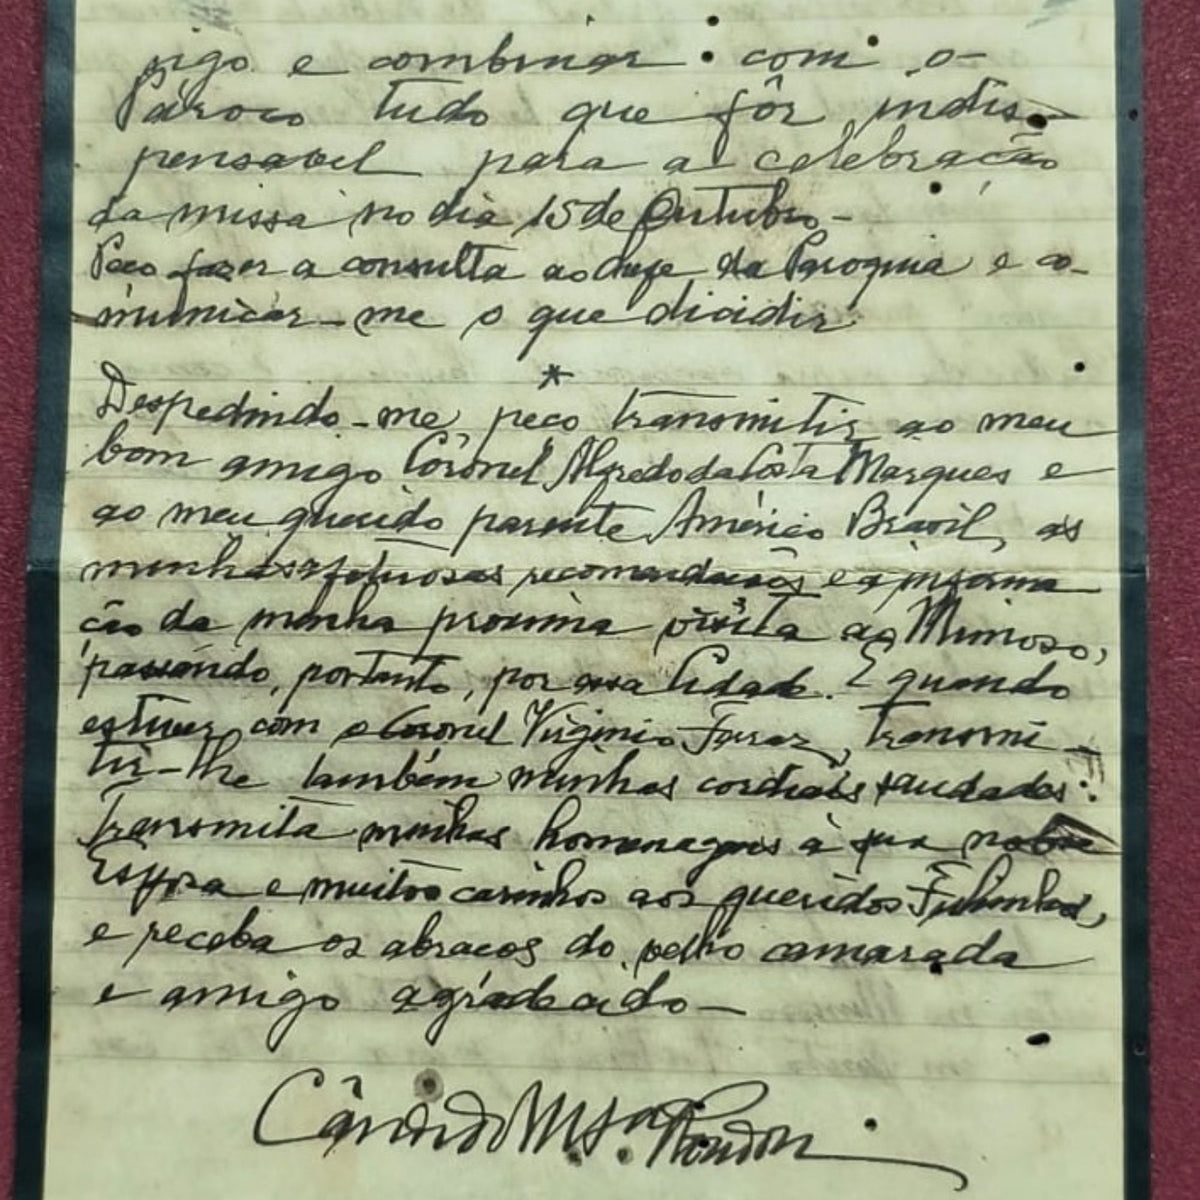 sigo e combinar com o
Pároco tudo que fôr indis-
pensavel para a celebração
da missa no dia 15 de Outubro-
Peço fazer a consulta ao chefe da Paroquia e co-
municar-me o que dicidir
*
Despedindo-me, peço transmitir ao meu
bom amigo Coronel Alfredo da Costa Marques e
ao meu querido parente América Brasil, as
minhas afetuosas recomendações e a informa
ção da minha proxima visita ao Mimoso,
passando, portanto, por essa Cidade. E quando
estiver com o Coronel Virginio Ferraz, transmi-
tir-lhe também minhas cordiais saudades.
Transmita minhas homenagens à sua nobre
Esposa e muitos carinhos aos queridos Filhinhos,
e receba os abraços do velho camarada
e amigo agradecido-
Cândido M. S. Rondon